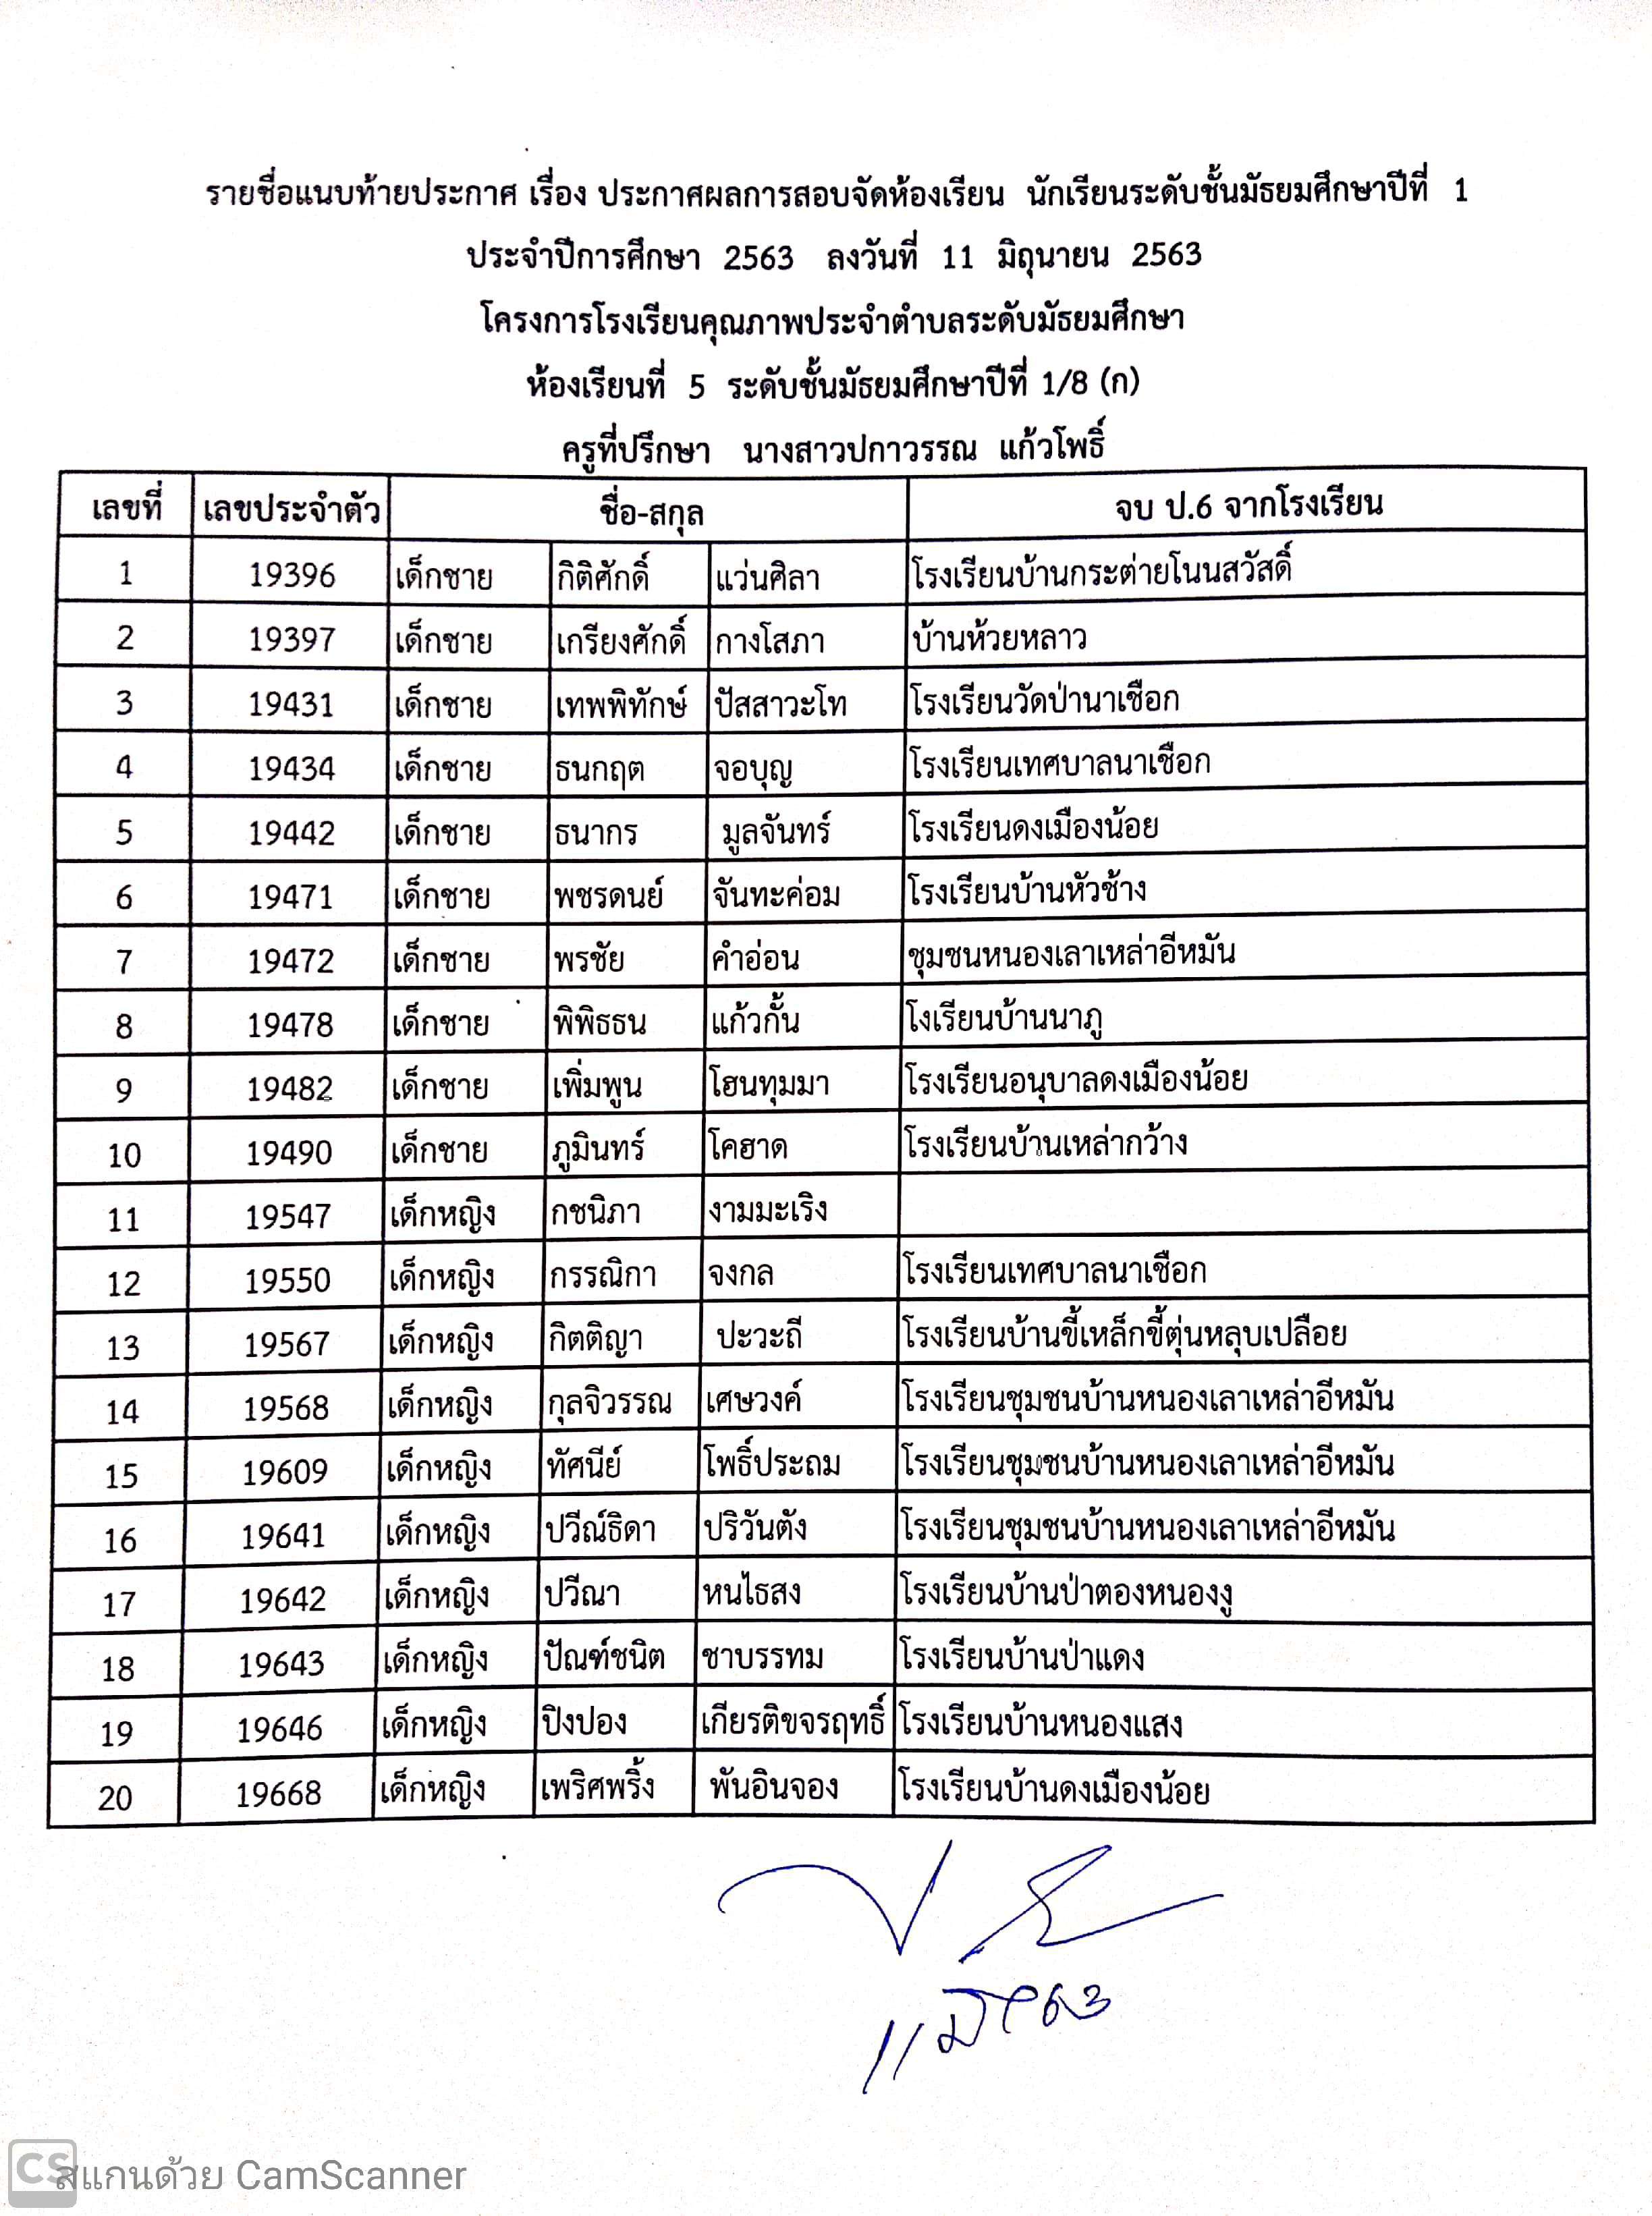 รายชื่อแนบท้ายประกาศ เรื่อง ประกาศผลการสอบจัดห้องเรียน นักเรียนระดับชั้นมัธยมศึกษาปีที่ 1
ประจำปีการศึกษา 2563 ลงวันที่ 11 มิถุนายน 2563
โครงการโรงเรียนคุณภาพประจำตำบลระดับมัธยมศึกษา
ห้องเรียนที่ 5 ระดับชั้นมัธยมศึกษาปีที่ 1/8 (ก)
ครูที่ปรึกษา นางสาวปภาวรรณ แก้วโพธิ์
เลขที่ เลขประจำตัว ชื่อ-สกุล จบ ป.6 จากโรงเรียน
1 19396 เด็กชาย กิติศักดิ์ แว่นศิลา โรงเรียนบ้านกระต่ายโนนสวัสดิ์
2 19397 เด็กชาย เกรียงศักดิ์ กางโสภา บ้านห้วยหลาว
3 19431 เด็กชาย เทพพิทักษ์ ปัสสาวะโท โรงเรียนวัดป่านาเชือก
4 19434 เด็กชาย ธนกฤต จอบุญ โรงเรียนเทศบาลนาเชือก
5 19442 เด็กชาย ธนากร มูลจันทร์ โรงเรียนดงเมืองน้อย
6 19471 เด็กชาย พชรดนย์ จันทะค่อม โรงเรียนบ้านหัวช้าง
7 19472 เด็กชาย พรชัย คำอ่อน ชุมชนหนองเลาเหล่าอีหมัน
8 19478 เด็กชาย พิพิธธน แก้วกั้น โงเรียนบ้านนาภู
9 19482 เด็กชาย เพิ่มพูน โฮนทุมมา โรงเรียนอนุบาลดงเมืองน้อย
10 19490 เด็กชาย ภูมินทร์ โคฮาด โรงเรียนบ้านเหล่ากว้าง
11 19547 เด็กหญิง กชนิภา งามมะเริง
12 19550 เด็กหญิง กรรณิกา จงกล โรงเรียนเทศบาลนาเชือก
13 19567 เด็กหญิง กิตติญา ปะวะถี โรงเรียนบ้านขี้เหล็กขี้ตุ่นหลุบเปลือย
14 19568 เด็กหญิง กุลจิวรรณ เศษวงค์ โรงเรียนชุมชนบ้านหนองเลาเหล่าอีหมัน
15 19609 เด็กหญิง ทัศนีย์ โพธิ์ประถม โรงเรียนชุมชนบ้านหนองเลาเหล่าอีหมัน
16 19641 เด็กหญิง ปวีณ์ธิดา ปริวันตัง โรงเรียนชุมชนบ้านหนองเลาเหล่าอีหมัน
17 19642 เด็กหญิง ปวีณา หนไธสง โรงเรียนบ้านป่าตองหนองงู
18 19643 เด็กหญิง ปัณฑ์ชนิต ชาบรรทม โรงเรียนบ้านป่าแดง
19 19646 เด็กหญิง ปิงปอง เกียรติขจรฤทธิ์ โรงเรียนบ้านหนองแสง
20 19668 เด็กหญิง เพริศพริ้ง พันอินจอง โรงเรียนบ้านดงเมืองน้อย
CS สแกนด้วย CamScanner